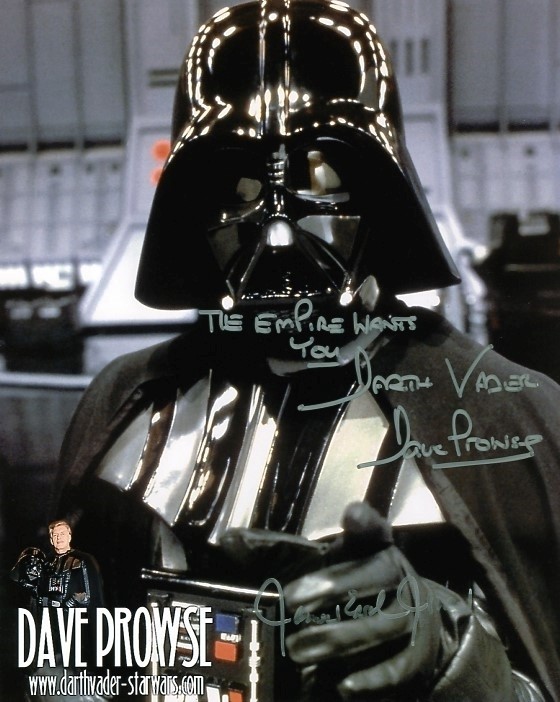 THE EMPIRE WANTS
YOU
DARTH VADER
Dave Prowse
James Earl Jones
DAVE PROWSE
www.darthvader-starwars.com